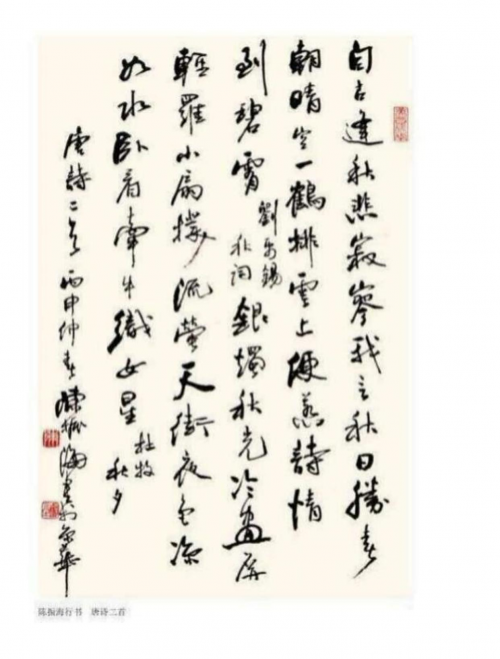 自古逢秋悲寂寥我言秋日勝春
朝晴空一鶴排雲上便惹詩情
到碧霄 劉禹錫 秋詞 銀燭秋光冷畫屏
輕羅小扇撲流螢天街夜色涼
如水卧看牽牛織女星 杜牧 秋夕
唐詩二首 丙申仲春 陳振海書於京華
陈振海行书 唐诗二首